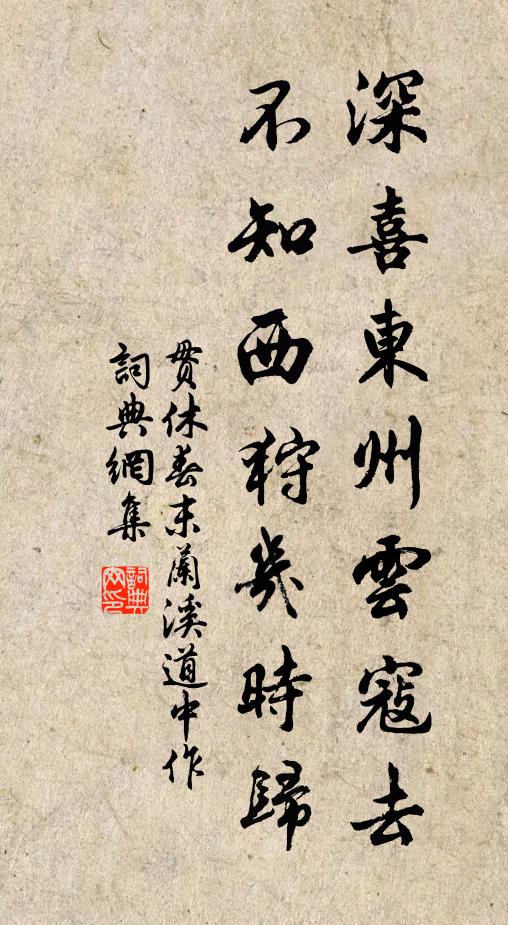 深喜東州雲寇去
不知西狩幾時歸
貫休春末蘭溪道中作
詞典網集
詞典
网印